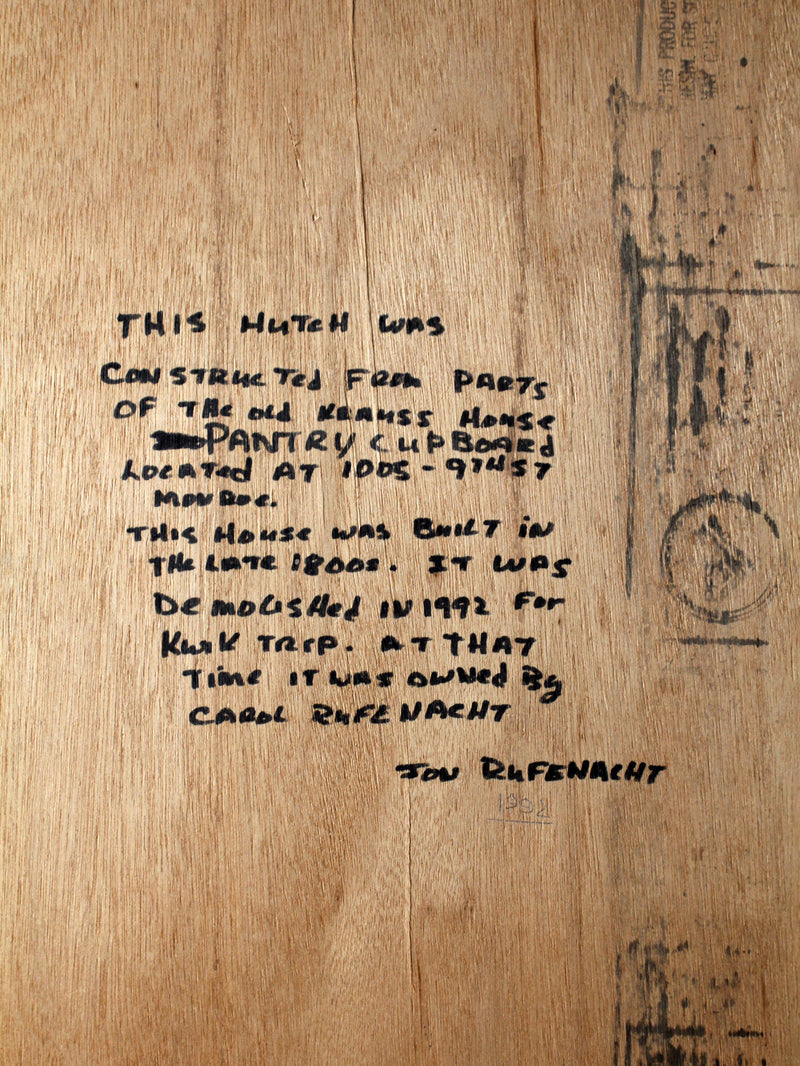 THIS PRODUC
RESIN FOR S
THIS HUTCH WAS
CONSTRUCTED FROM PARTS
OF THE OLD KRAUSS HOUSE
PANTRY CUPBOARD
LOCATED AT 1005 - 9TH ST
MONROE.
THIS HOUSE WAS BUILT IN
THE LATE 1800s. IT WAS
DEMOLISHED IN 1992 FOR
KWIK TRIP. AT THAT
TIME IT WAS OWNED By
CAROL RUFENACHT
JON RUFENACHT
1992